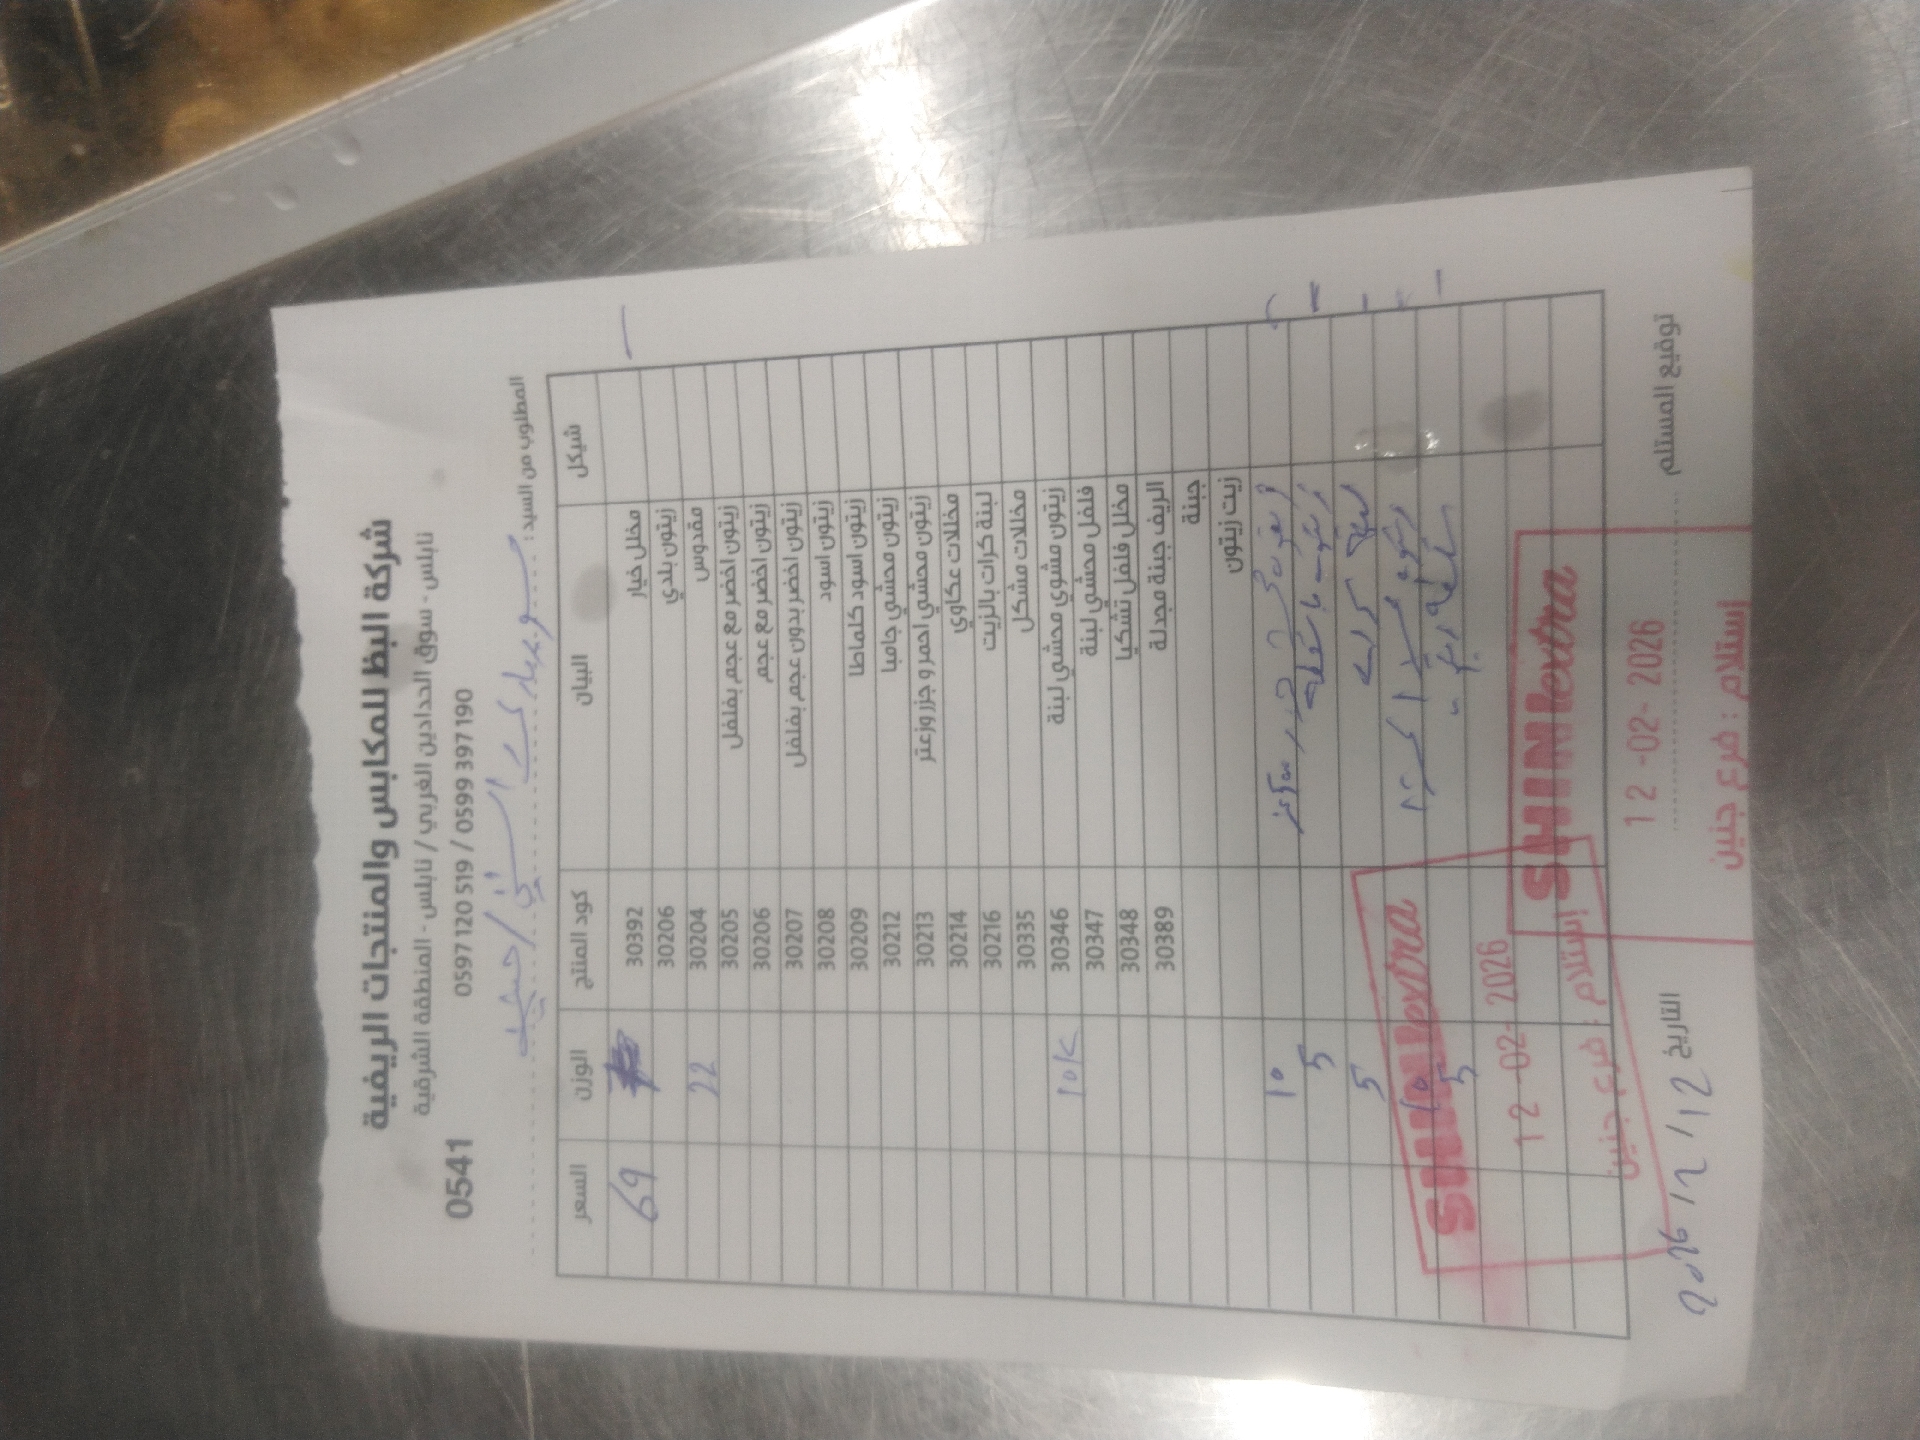 شركة البظ للمكابس والمنتجات الريفية
نابلس - سوق الحدادين الغربي / نابلس - المنطقة الشرقية
0597 120 519 / 0599 397 190
0541
المطلوب من السيد :
السعر الوزن كود المنتج البيان شيكل
69 30392 مخلل خيار
30206 زيتون بلدي
22 30204 مقدوس
30205 زيتون اخضر مع عجم بفلفل
30206 زيتون اخضر مع عجم
30207 زيتون اخضر بدون عجم بفلفل
30208 زيتون اسود
30209 زيتون اسود كلماطا
30212 زيتون محشي جامبا
30213 زيتون محشي احمر و جزر وزعتر
30214 مخللات عكاوي
30216 لبنة كرات بالزيت
30335 مخللات مشكل
10K 30346 زيتون مشوي محشي لبنة
30347 فلفل محشي لبنة
30348 مخلل فلفل تشكيا
30389 الريف جبنة مجدلة
جبنة
زيت زيتون
10
5
5
10
5
SHINI extra
12-02-2026
إستلام : فرع جنين
SHINI extra
12-02-2026
إستلام : فرع جنين
التاريخ 2026/2/12
توقيع المستلم